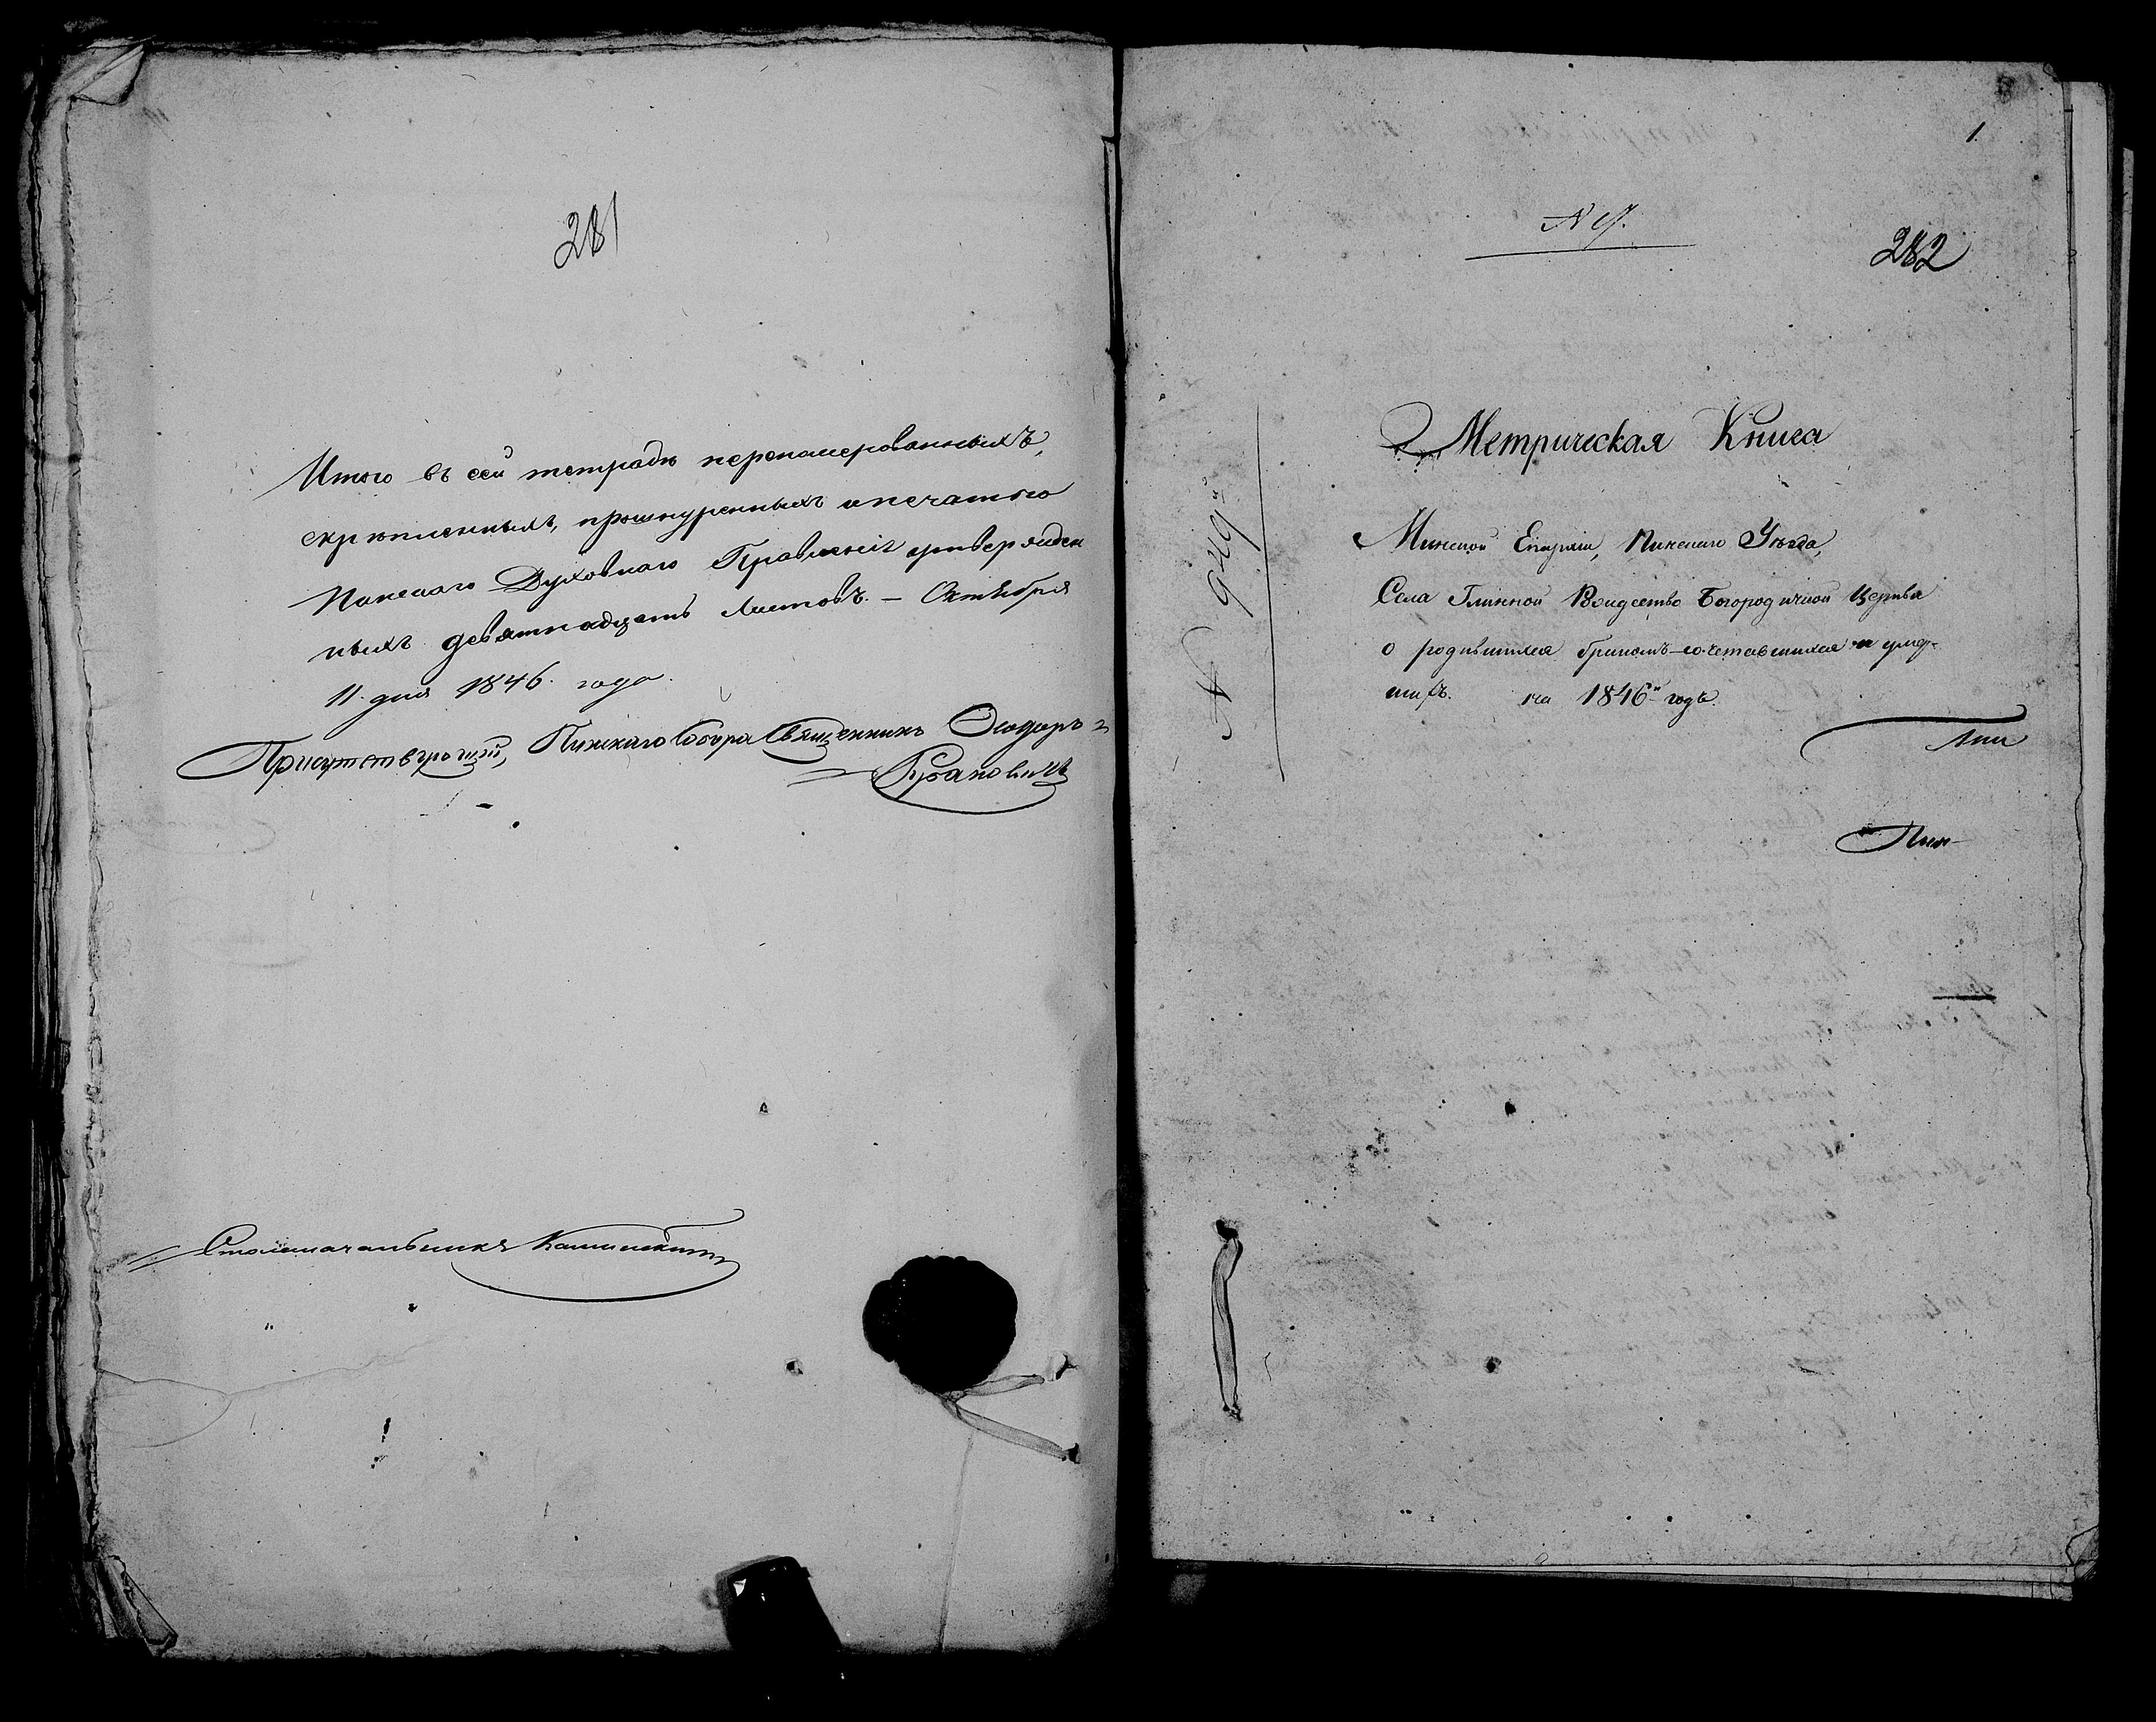 281
Итого въ сей тетради перенумерованныхъ,
скрѣпленныхъ, прошнуренныхъ и печатью
Пинскаго Духовнаго Правленія утвержден
ныхъ девятнадцать листовъ. — Октября
11. дня 1846. года.
Присутствующій, Пинскаго Собора Священникъ Ѳеодоръ
Столоначальникъ
1.
N 9.
282
N 949й
Метрическая Книга
Минской Епархіи, Пинскаго Уѣзда,
Села Глинной Рождество Богородичной Церкви
о родившихся бракомъ-сочетавшихся и умер-
шихъ. на 1846й годъ.
Пин-